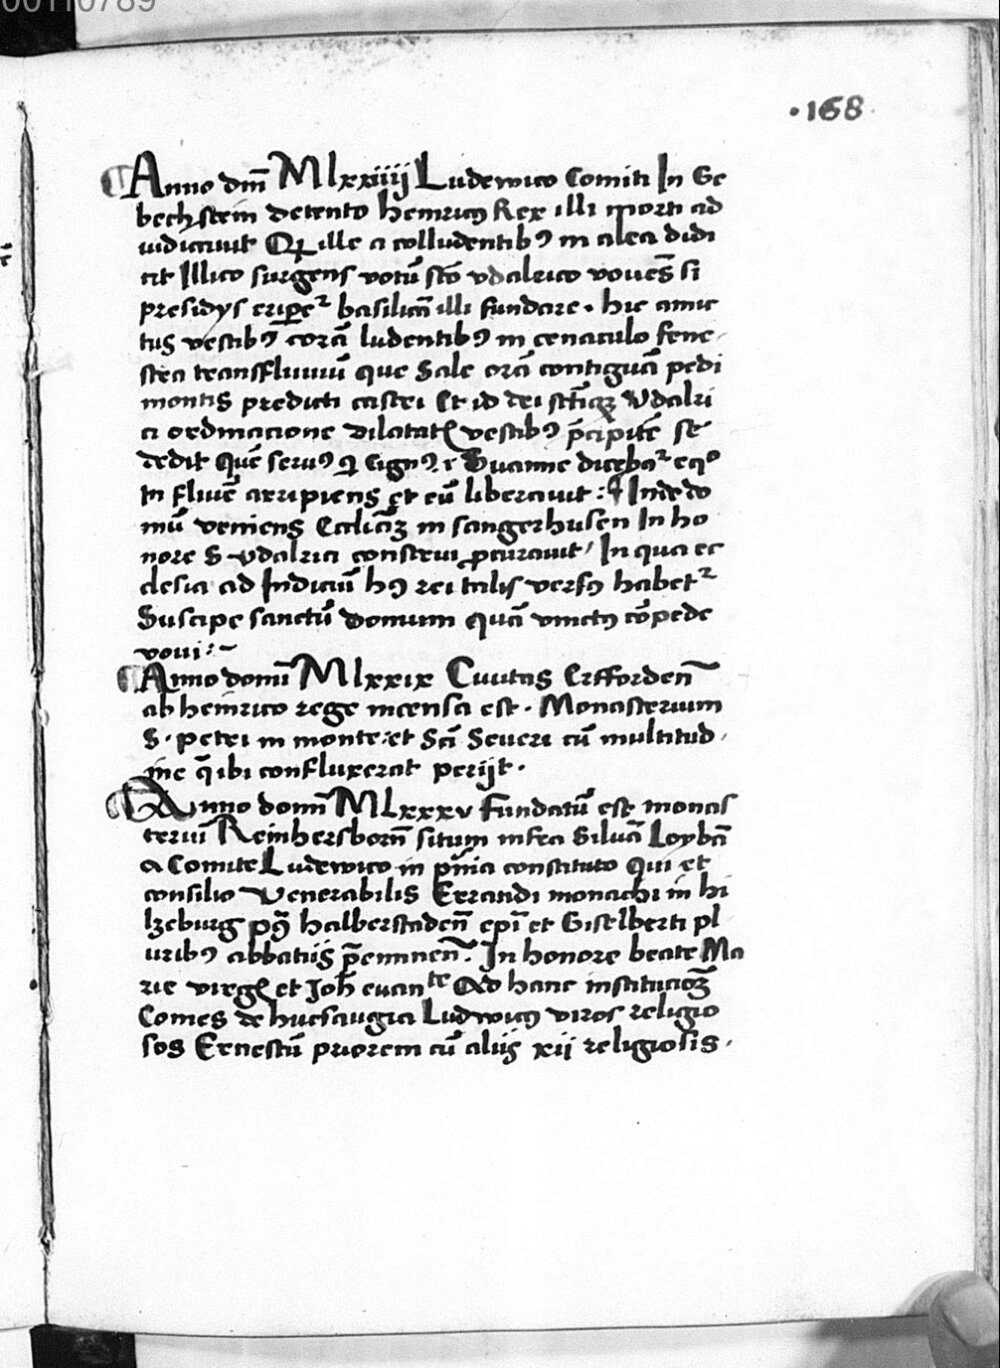 00110789
·168·
Anno dm̄ Mlxxiiiij Ludewico Comiti In Ge
bechstein detento heinricꝰ Rex illi morti ad
iudicauit Qꝫ ille a colludentibꝰ in alea didi
cit Illico surgens votū sto vdalrico vouēs si
presidys eriper basilicā illi fundare · hic amic
tus vestibꝰ corā ludentibꝰ in cenaculo fene
stra transfluuiū que Sale orā contiguā pedi
montis predicti castri Et id dei sctiqꝫ Vdalri
ci ordinacione dilatatꝭ vestibꝰ p̄cipitē se
dedit Quē seruꝰ qͥ Cignꝰ Swanne diceba eqͦ
In fluuē arripiens et eū liberauit : Inde do
mū veniens Eccliāꝫ in sangerhusen In ho
nore S vdalrici construi ꝓcurauit In qua ec
clesia ad Indiciū hꝰ rei talis versꝰ habet
Suscipe sanctū domum quā vinctꝰ cōpede
voui :~
Anno domī Mlxxix Ciuitas Erffordeñ
ab heinrico rege incensa est · Monasterium
S · petri in monte et Sci Seueri cū multitud
ine q̄ ibi confluxerat perijt ·
Anno domī MLxxxv fundatū est monas
teriū Reinhersborñ situm infra Siluā Loybā
a Comite Ludewico in pn̄ia constituto Qui et
consilio Venerabilis Errandi monachi in hi
lzeburg pꝰ halberstadeñ epī et Giselberti pl
uribꝰ abbatiis p̄eminen̄. In honore beate Ma
rie virgꝭ et Joh̄ euanᵗᵉ Ad hanc instituciōꝫ
Comes de huesaugia Ludwicꝰ viros religio
sos Ernestū priorem cū aliis xii religiosis ·